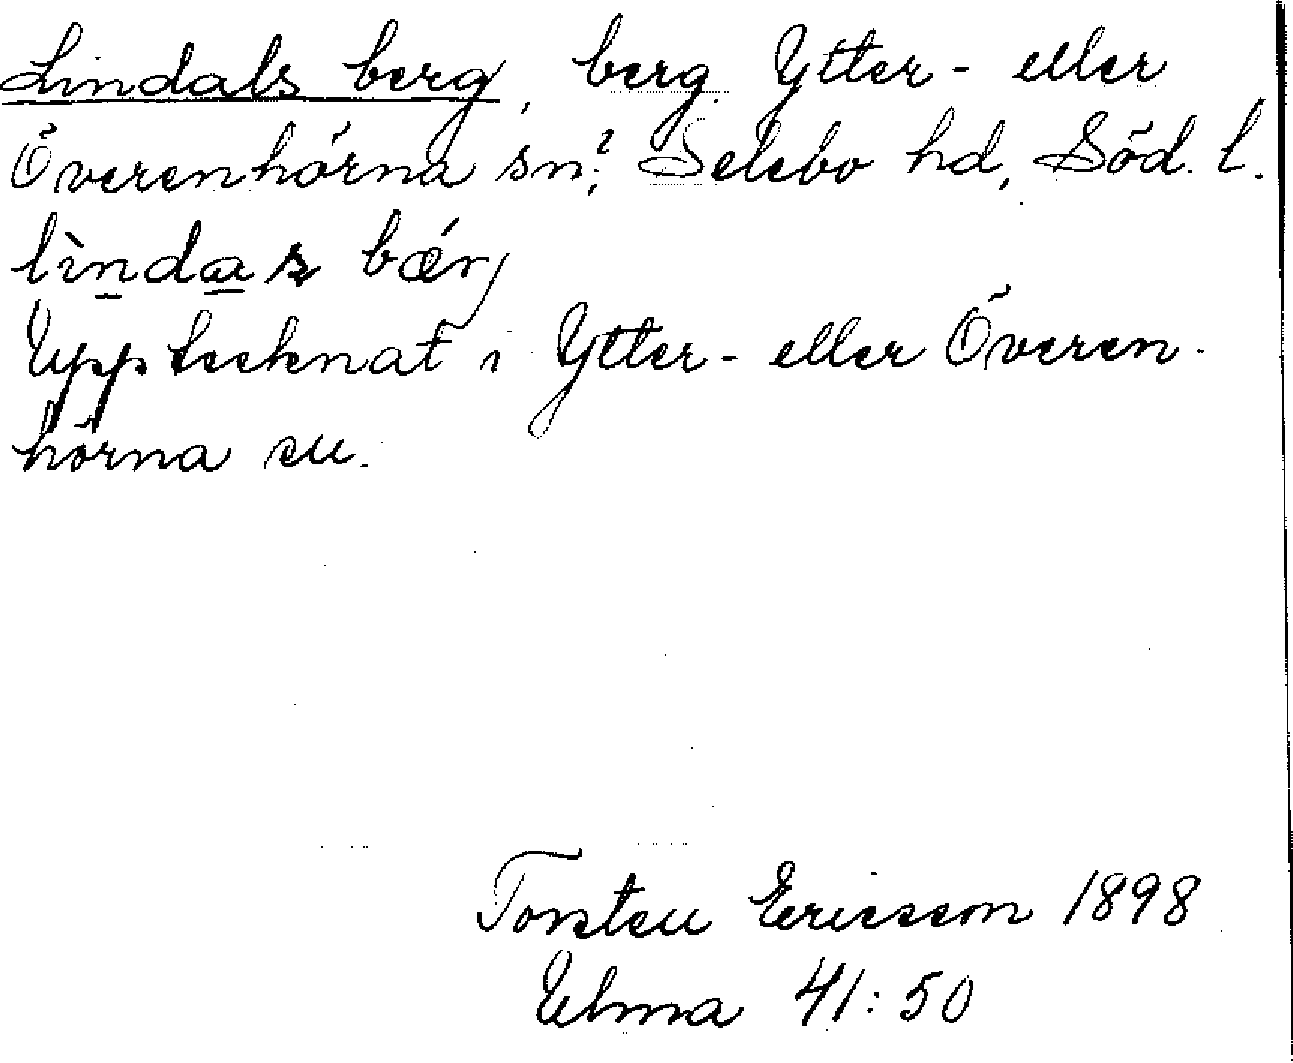 Lindals berg, berg Ytter- eller
Överenhörna sn?, Selebo hd, Söd. l.
lìndas bǽrj
Upptecknat i Ytter- eller Överen-
hörna sn.
Torsten Ericsson 1898
Ulma 41:50